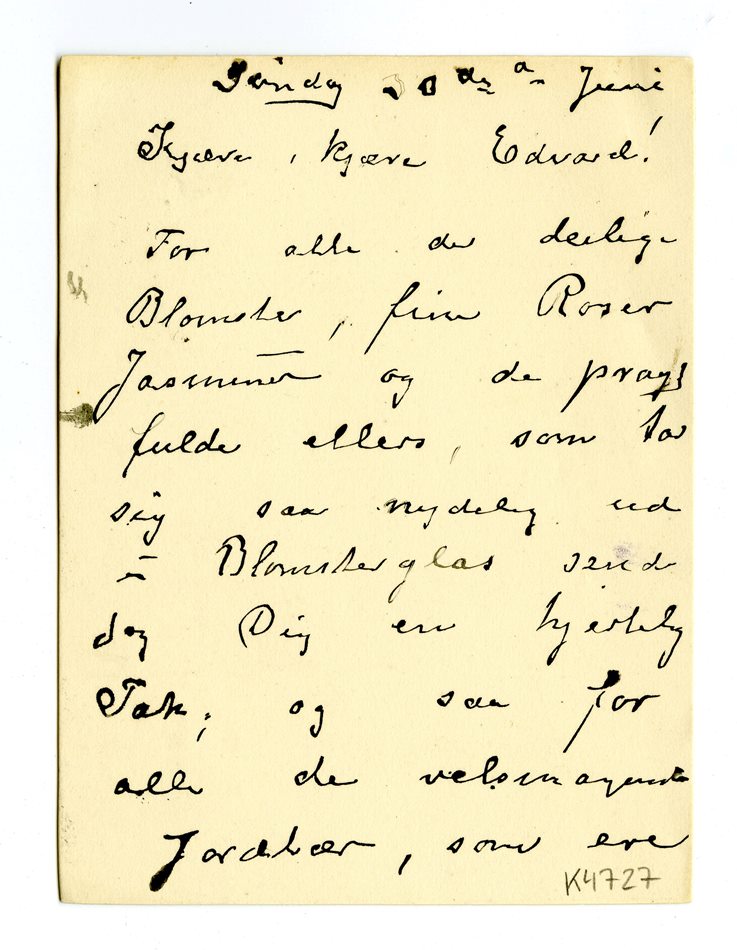 Søndag 30 de Juni
Kjære, kjære Edvard!
For alle de deilige
Blomster, fine Roser
Jasminer og de pragt
fulde ellers, som tar
sig saa nydelig ud
i Blomsterglas sende
Jeg Dig en hjertelig
Tak; og saa for
alle de velsmagende
Jordbær, som ere
K4727